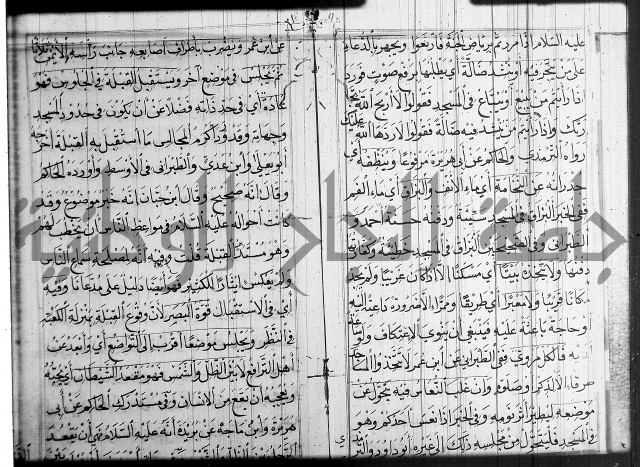 عليه السلام اذا مررتم برياض الجنة فارتعوا ويجهر بالدعاء
على من يتجر فيه او ينشد ضالة اى يطلبها برفع صوت فورد
اذا رأيتم من يبيع او يبتاع فى المسجد فقولوا لا اربح الله
تجارتك واذا رأيتم من ينشد فيه ضالة فقولوا لا ردها الله عليك
رواه الترمذى والحاكم عن ابى هريرة مرفوعا وينظف
جدرانه عن النخامة اى ماء الانف والبزاق اى ماء الفم
ففى الخبر البزاق فى المسجد سيئة ودفنه حسنة احمد و
الطبرانى وفى الصحيحين البزاق فى المسجد خطيئة وكفارتها
دفنها ولا يتخذه بيتا اى مسكنا الا اذا كان غريبا ولم يجد
مكانا قريبا ولا معبرا اى طريقا وممرا الا ضرورة داعية اليه
او حاجة باعثة عليه فينبغى ان ينوى الاعتكاف ولو
فالكل مروى ففى الطبرانى عن ابن عمر لا تتخذوا المساجد
طرقا الا لذكر او صلوة وان غلب النعاس فيه يتحول عن
موضعه ليطير اثر نومه وفى الخبر اذا نعس احدكم وهو
فى المسجد فليتحول من مجلسه ذلك الى غيره ابو داود والترمذى
عن ابن عمر ويضرب باطراف اصابعه جانب رأسه الايمن ثلاثا
ثم يجلس فى موضع آخر ويستقبل القبلة فى الجلوس فهو
عادة اى فى حد ذاته فضلا عن ان يكون فى حدود المسجد
وجهاته وقد ورد اكرم المجالس ما استقبل به القبلة اخرجه
ابو يعلى وابن عدى والطبرانى فى الاوسط واورده الحاكم
وقال انه صحيح وقال ابن حبان انه خبر موضوع وقد
كانت احواله عليه السلام فى مواعظ الناس ان يخطب لهم
وهو مستدبر القبلة قلت وفيه انه لمصلحة سماع الناس
ولم يعكس ايثارا للكثير فهو ايضا دليل على مدعانا وفيه
اى فى الاستقبال قوة البصر لان وقوع القبلة بمنزلة الكعبة
فى النظر ويجلس موضعا اقرب الى التواضع اى وابعد عن
اهل الترافع لا بين الظل والشمس فهو مقعد الشيطان اى يحبه
ويعجبه ان يقع من الانسان وفى مستدرك الحاكم عن ابى
هريرة وابن ماجة عن بريدة انه عليه السلام نهى ان يقعد
جامعة النجاح الوطنية